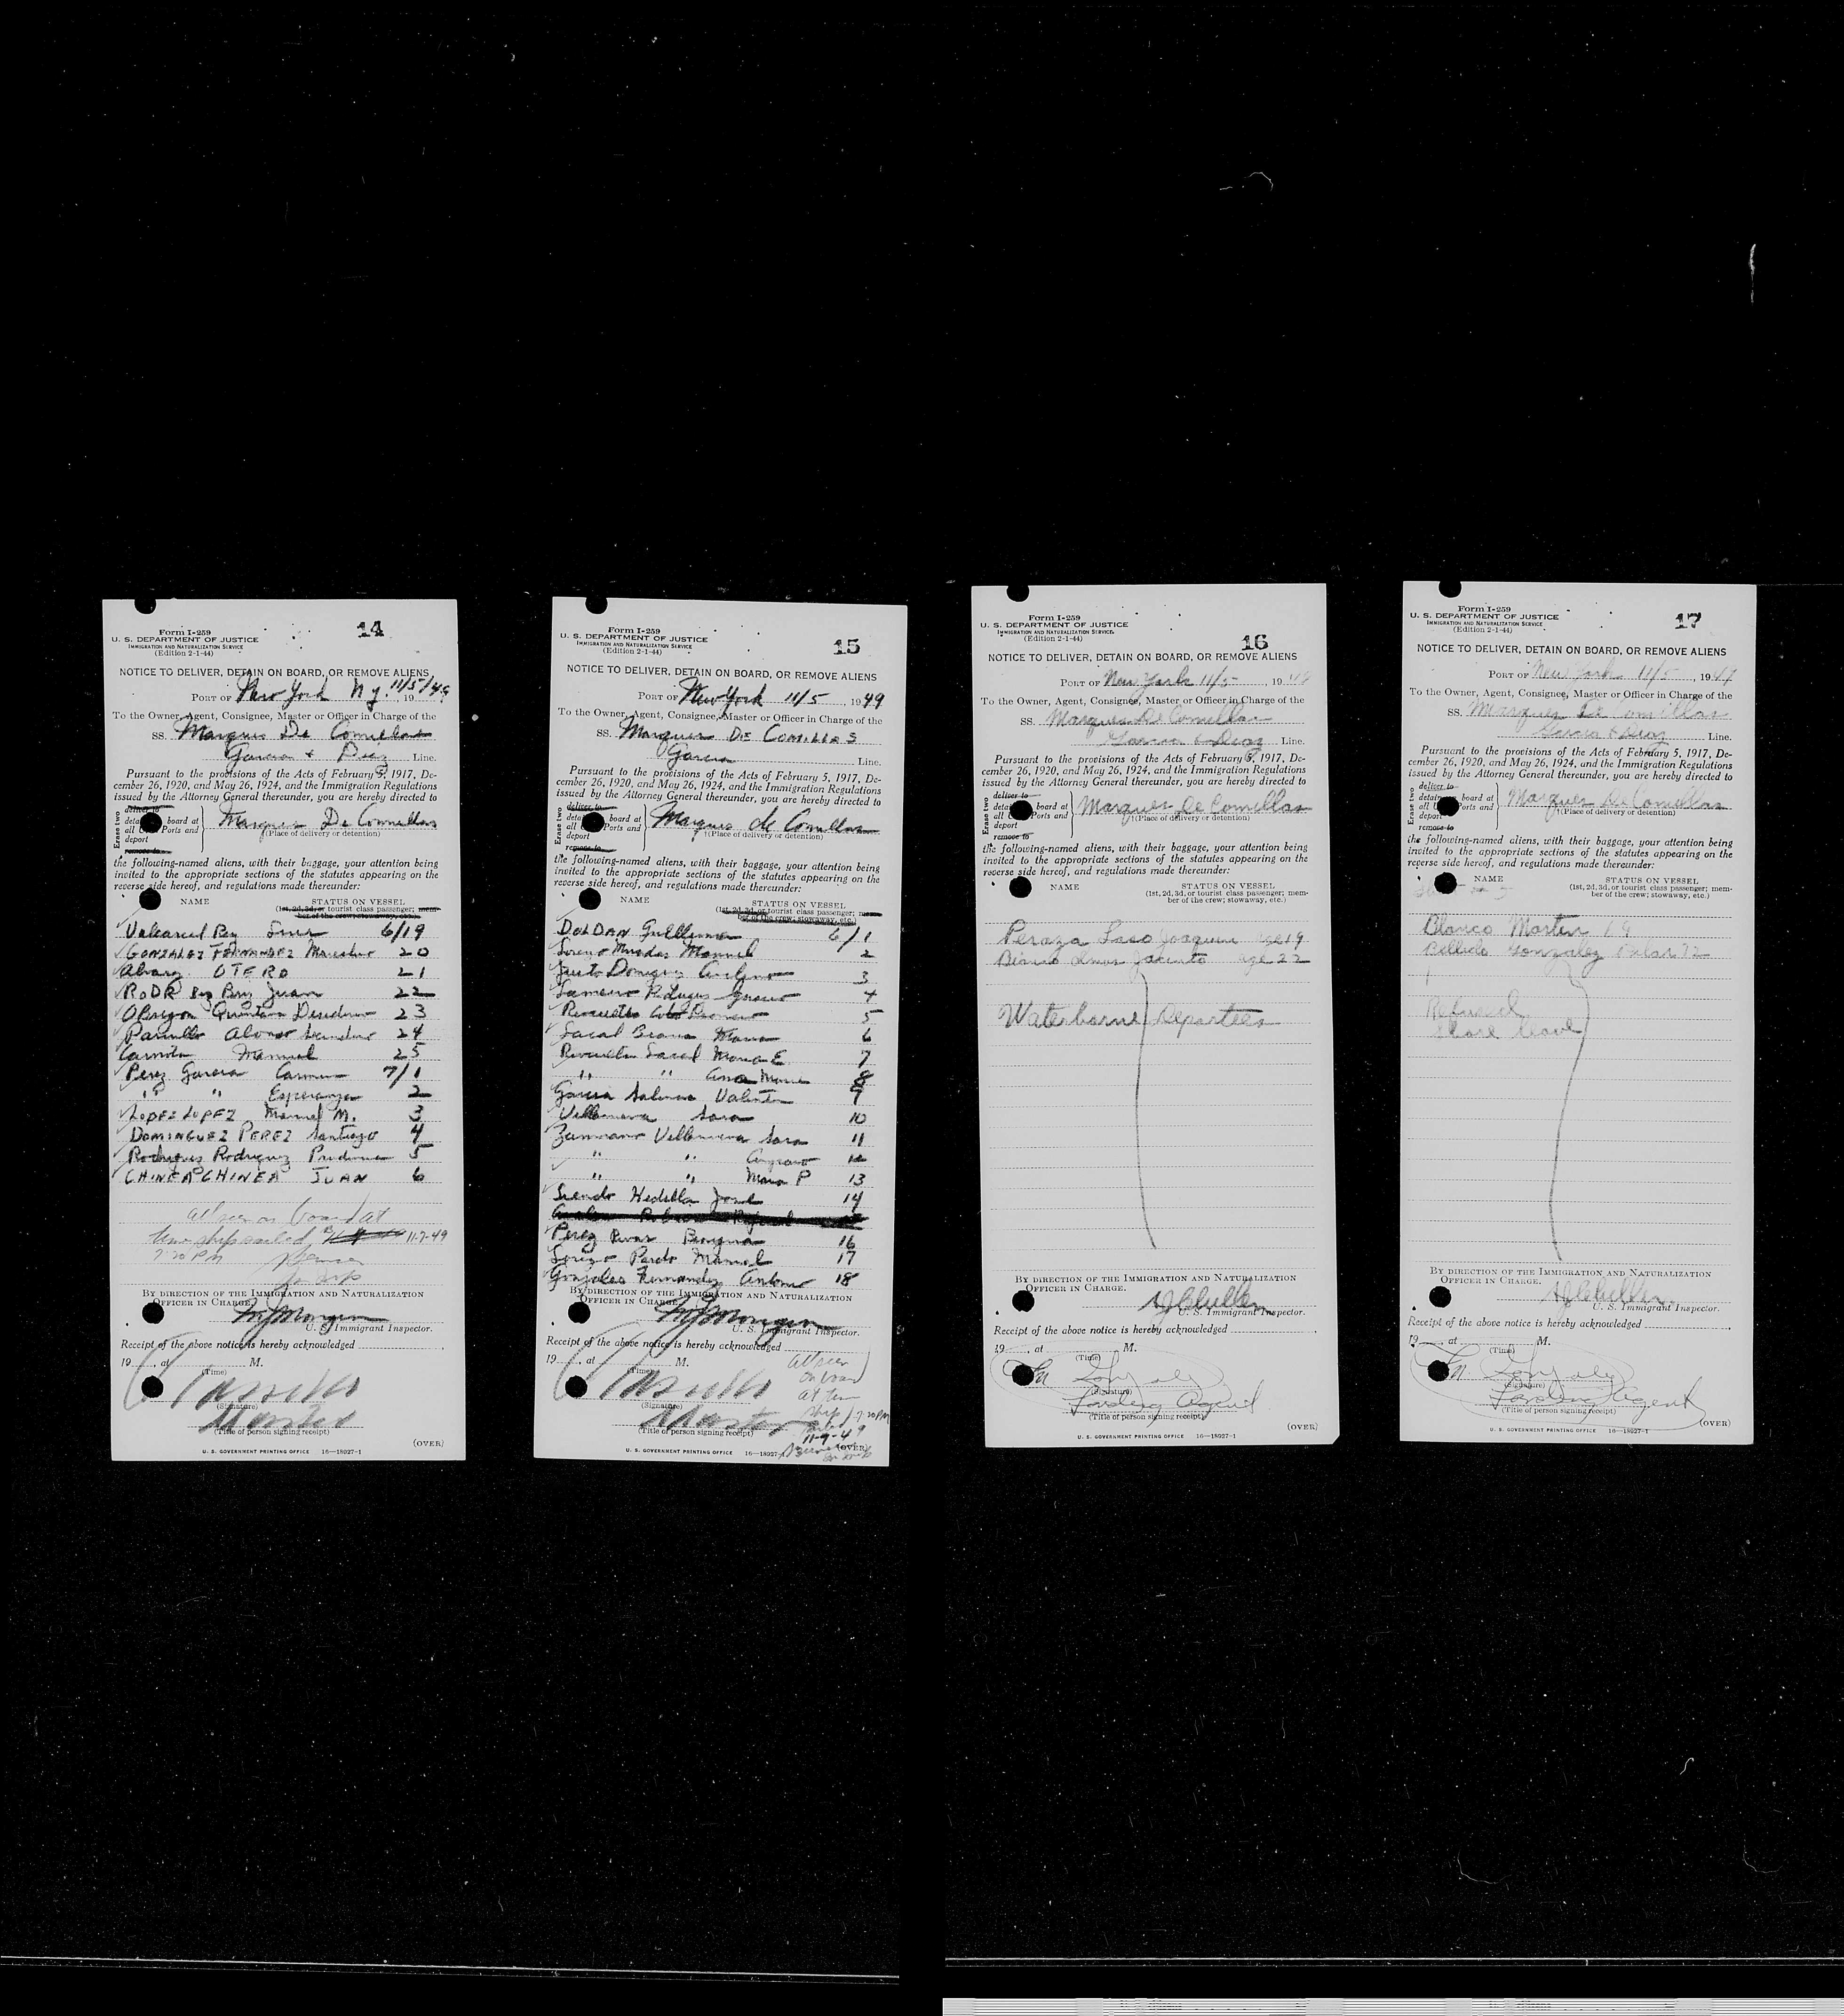 Form I-259
14
U. S. DEPARTMENT OF JUSTICE
IMMIGRATION AND NATURALIZATION SERVICE
(Edition 2-1-44)
NOTICE TO DELIVER, DETAIN ON BOARD, OR REMOVE ALIENS
PORT OF New York N.Y. 11/5/49, 19
To the Owner, Agent, Consignee, Master or Officer in Charge of the
SS. Marques De Comillas
Garcia & Diez Line.
Pursuant to the provisions of the Acts of February 5, 1917, De-
cember 26, 1920, and May 26, 1924, and the Immigration Regulations
issued by the Attorney General thereunder, you are hereby directed to
Erase two
deliver to
board at
all Ports and
deport
remove to
Marques De Comillas
(Place of delivery or detention)
the following-named aliens, with their baggage, your attention being
invited to the appropriate sections of the statutes appearing on the
reverse side hereof, and regulations made thereunder:
NAME STATUS ON VESSEL
(1st, 2d, 3d, or tourist class passenger; mem-
ber of the crew; stowaway, etc.)
6/19
GONZALEZ FERNANDEZ 20
OTERO 21
Juan 22
Obregon Quintana 23
Alonso 24
Manuel 25
Perez Garcia Carmen 7/1
" " Esperanza 2
LOPEZ LOPEZ Manuel M. 3
DOMINGUEZ PEREZ Santiago 4
Rodriguez Rodriguez 5
CHINEA CHINEA JUAN 6
on board at
time ship sailed 11-7-49
7:30 PM
BY DIRECTION OF THE IMMIGRATION AND NATURALIZATION
OFFICER IN CHARGE.
U. S. Immigrant Inspector.
Receipt of the above notice is hereby acknowledged
19, at M.
(Time)
(Signature)
Master
(Title of person signing receipt)
(OVER)
U. S. GOVERNMENT PRINTING OFFICE 16—18027-1
Form I-259
15
U. S. DEPARTMENT OF JUSTICE
IMMIGRATION AND NATURALIZATION SERVICE
(Edition 2-1-44)
NOTICE TO DELIVER, DETAIN ON BOARD, OR REMOVE ALIENS
PORT OF New York 11/5 1949
To the Owner, Agent, Consignee, Master or Officer in Charge of the
SS. Marques DE COMILLAS
Garcia Line.
Pursuant to the provisions of the Acts of February 5, 1917, De-
cember 26, 1920, and May 26, 1924, and the Immigration Regulations
issued by the Attorney General thereunder, you are hereby directed to
Erase two
deliver to
board at
all Ports and
deport
remove to
Marques de Comillas
(Place of delivery or detention)
the following-named aliens, with their baggage, your attention being
invited to the appropriate sections of the statutes appearing on the
reverse side hereof, and regulations made thereunder:
NAME STATUS ON VESSEL
(1st, 2d, 3d, or tourist class passenger; mem-
ber of the crew; stowaway, etc.)
DOLDAN Guillermo 6/1
Manuel 2
3
4
5
Maria 6
Maria E. 7
" " Ana Maria 8
Garcia Salinas Valentin 9
Villanueva Sara 10
Zamorano Villanueva Sara 11
" " Amparo 12
" " Maria P 13
Jose 14
Perez Rivas 16
Lorenzo Pardo Manuel 17
Gonzales Fernandez Antonio 18
BY DIRECTION OF THE IMMIGRATION AND NATURALIZATION
OFFICER IN CHARGE.
U. S. Immigrant Inspector.
Receipt of the above notice is hereby acknowledged
19, at M.
(Time)
on board
at time
ship 7:30 PM
11-7-49
(Signature)
Master
(Title of person signing receipt)
(OVER)
U. S. GOVERNMENT PRINTING OFFICE 16—18027-1
Form I-259
16
U. S. DEPARTMENT OF JUSTICE
IMMIGRATION AND NATURALIZATION SERVICE
(Edition 2-1-44)
NOTICE TO DELIVER, DETAIN ON BOARD, OR REMOVE ALIENS
PORT OF New York 11/5, 1949
To the Owner, Agent, Consignee, Master or Officer in Charge of the
SS. Marques De Comillas
Garcia & Diaz Line.
Pursuant to the provisions of the Acts of February 5, 1917, De-
cember 26, 1920, and May 26, 1924, and the Immigration Regulations
issued by the Attorney General thereunder, you are hereby directed to
Erase two
deliver to
board at
all Ports and
deport
remove to
Marques De Comillas
(Place of delivery or detention)
the following-named aliens, with their baggage, your attention being
invited to the appropriate sections of the statutes appearing on the
reverse side hereof, and regulations made thereunder:
NAME STATUS ON VESSEL
(1st, 2d, 3d, or tourist class passenger; mem-
ber of the crew; stowaway, etc.)
Peraza Laso Joaquin age 19
Jacinto age 22
Waterborne Deportees
BY DIRECTION OF THE IMMIGRATION AND NATURALIZATION
OFFICER IN CHARGE.
U. S. Immigrant Inspector.
Receipt of the above notice is hereby acknowledged
19, at M.
(Time)
(Signature)
Landing Agent
(Title of person signing receipt)
(OVER)
U. S. GOVERNMENT PRINTING OFFICE 16—18027-1
Form I-259
17
U. S. DEPARTMENT OF JUSTICE
IMMIGRATION AND NATURALIZATION SERVICE
(Edition 2-1-44)
NOTICE TO DELIVER, DETAIN ON BOARD, OR REMOVE ALIENS
PORT OF New York 11/5, 1949
To the Owner, Agent, Consignee, Master or Officer in Charge of the
SS. Marques De Comillas
Garcia & Diaz Line.
Pursuant to the provisions of the Acts of February 5, 1917, De-
cember 26, 1920, and May 26, 1924, and the Immigration Regulations
issued by the Attorney General thereunder, you are hereby directed to
Erase two
deliver to
board at
all Ports and
deport
remove to
Marques De Comillas
(Place of delivery or detention)
the following-named aliens, with their baggage, your attention being
invited to the appropriate sections of the statutes appearing on the
reverse side hereof, and regulations made thereunder:
NAME STATUS ON VESSEL
(1st, 2d, 3d, or tourist class passenger; mem-
ber of the crew; stowaway, etc.)
Blanco Martin 19
Bellido Gonzalez 72
Refused
Shore leave
BY DIRECTION OF THE IMMIGRATION AND NATURALIZATION
OFFICER IN CHARGE.
U. S. Immigrant Inspector.
Receipt of the above notice is hereby acknowledged
19, at M.
(Time)
(Signature)
Landing Agent
(Title of person signing receipt)
(OVER)
U. S. GOVERNMENT PRINTING OFFICE 16—18027-1